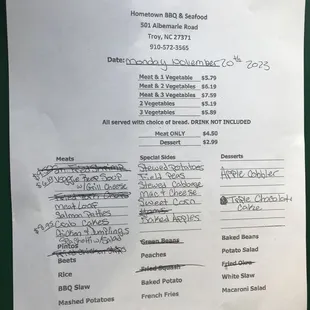 Hometown BBQ & Seafood
501 Albemarle Road
Troy, NC 27371
910-572-3565
Date: monday november 20th 2023
Meat & 1 Vegetable $5.79
Meat & 2 Vegetable $6.19
Meat & 3 Vegetable $7.59
2 Vegetables $5.19
3 Vegetables $5.89
All served with choice of bread. DRINK NOT INCLUDED
Meat ONLY $4.50
Dessert $2.99
Meats Special Sides Desserts
Stewed Potatoes
Veggie Beef Soup Field Peas Apple Cobbler
w/Grill Cheese Stewed Cabbage
Mac & Cheese
Meat Loaf Sweet Corn Triple Chocolate
Salmon Patties Cake
Crab Cakes Baked Apples
Chicken & Dumplings
Spaghetti w/Salad Green Beans Baked Beans
Pintos Peaches Potato Salad
Beets Fried Squash Fried Okra
Rice Baked Potato White Slaw
BBQ Slaw French Fries Macaroni Salad
Mashed Potatoes